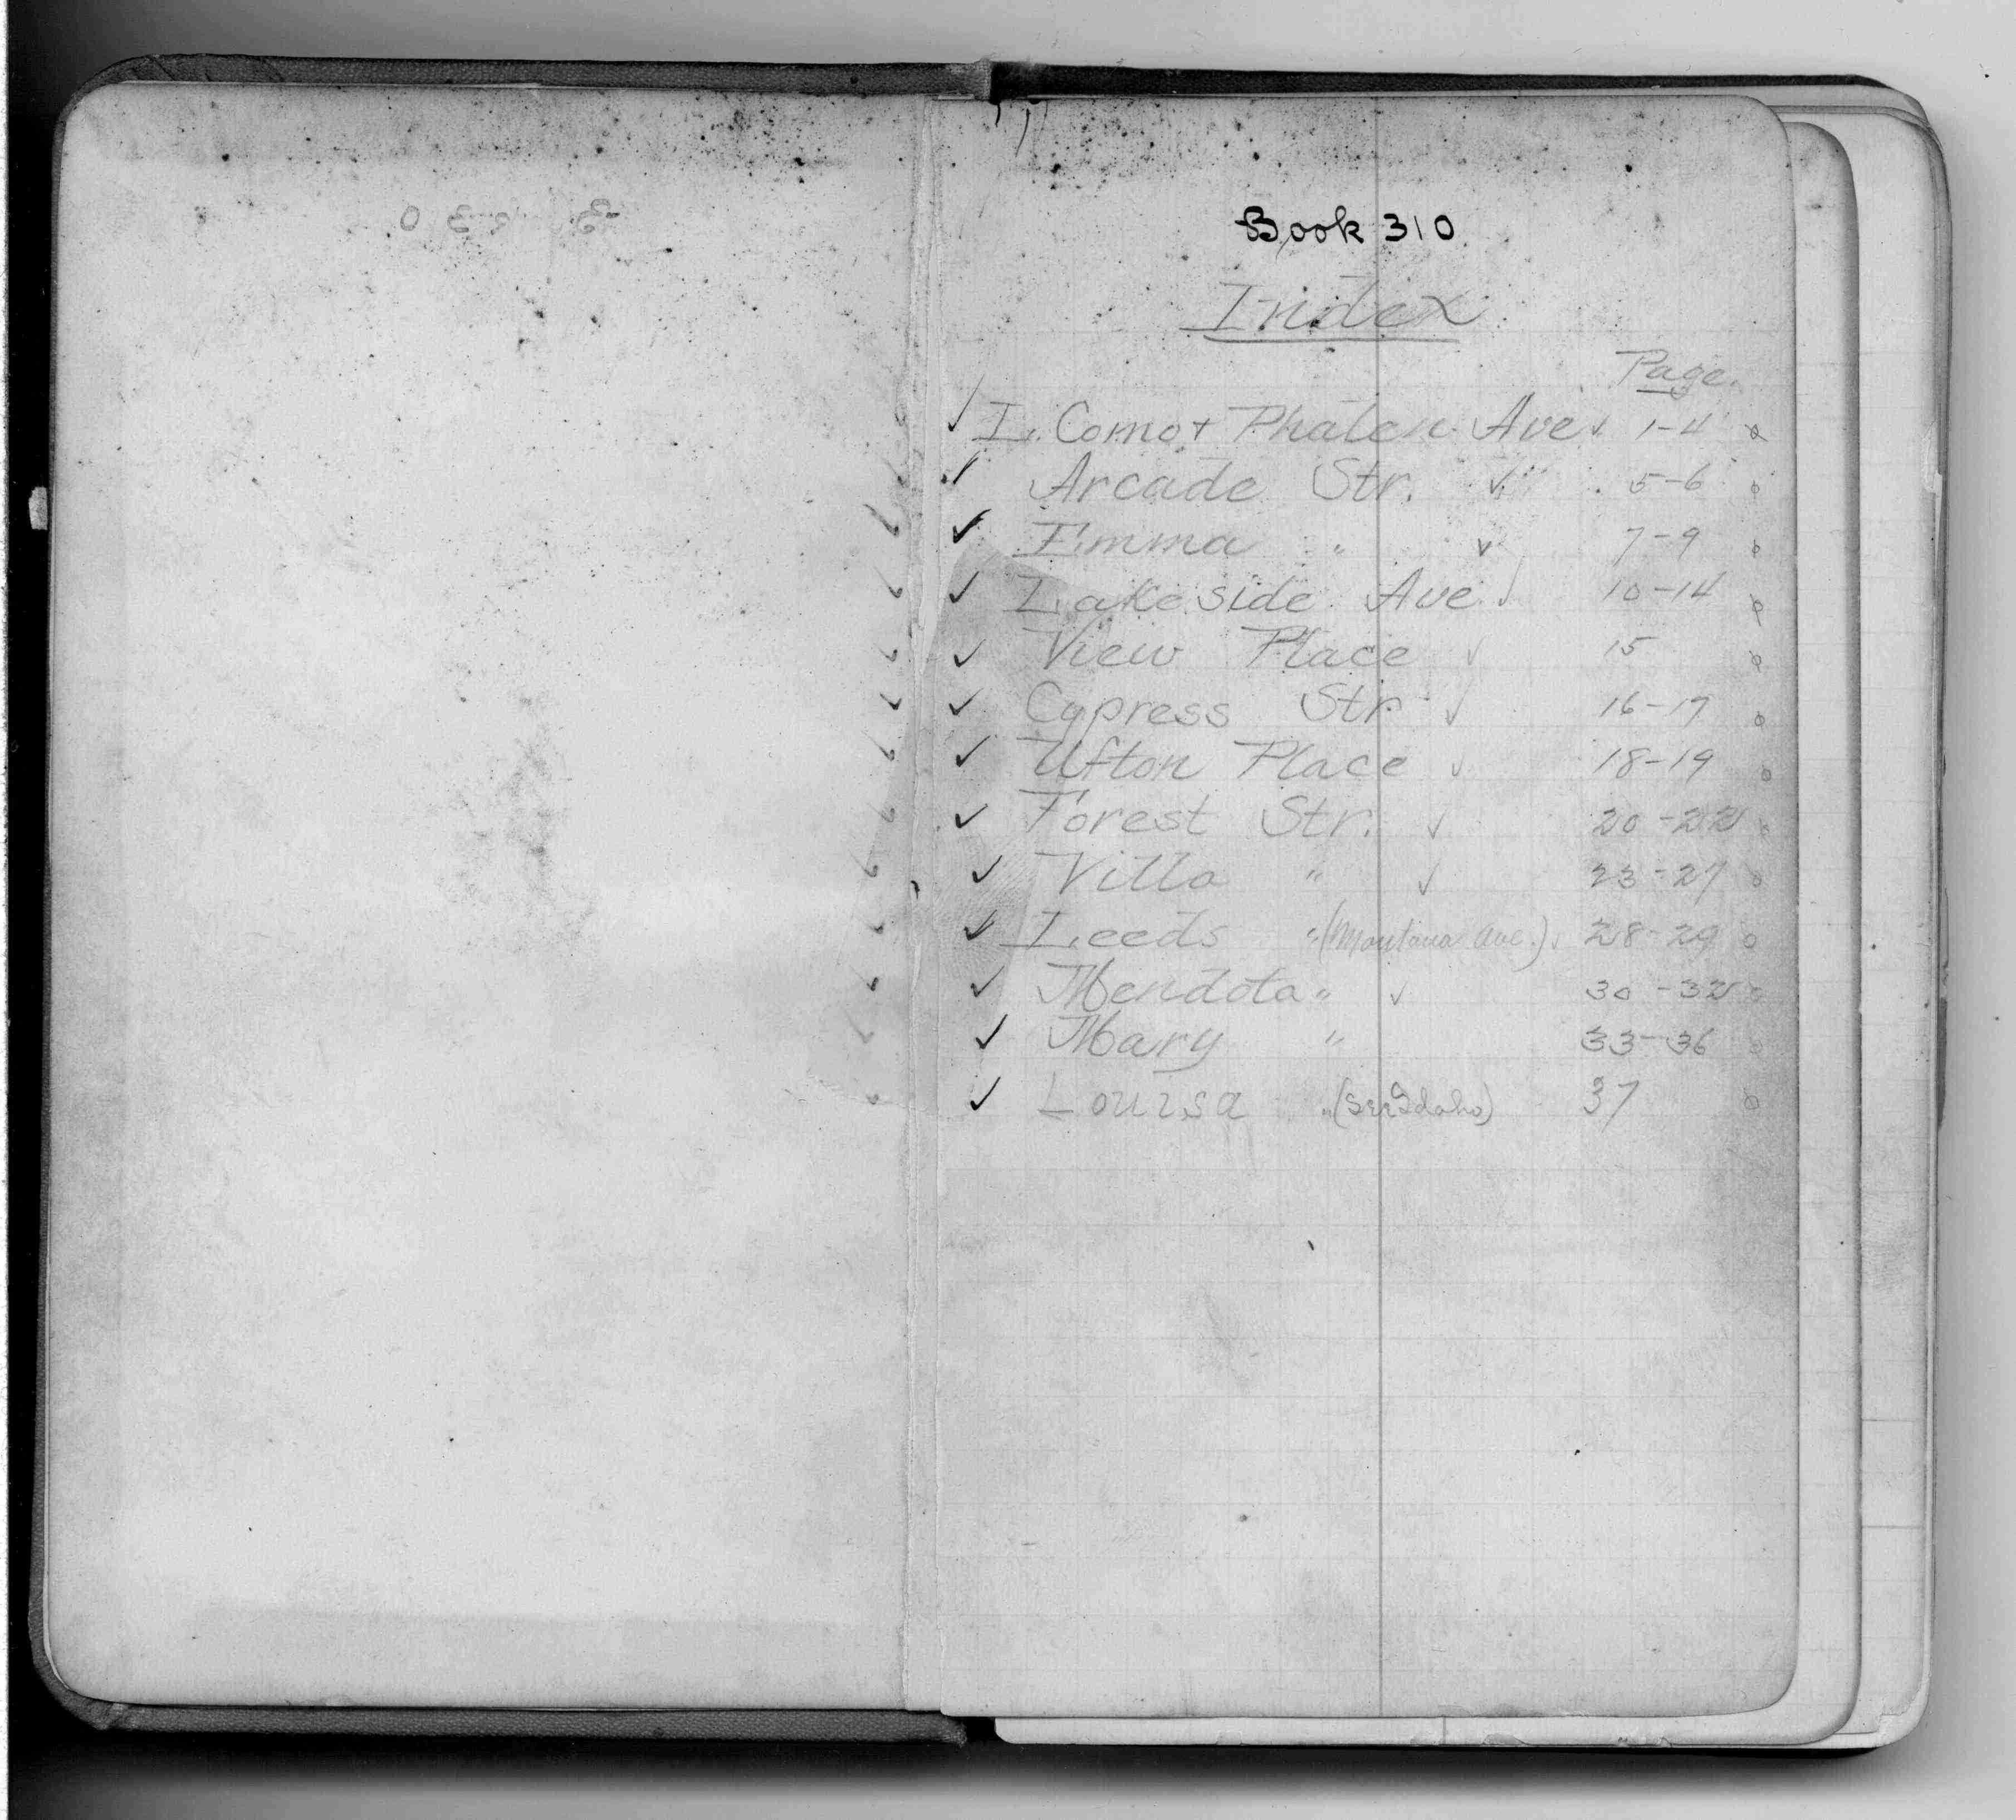 Book 310
Index
Page.
✓ L. Como + Phalen Ave ✓ 1-4
✓ Arcade Str. ✓ 5-6
✓ Emma " ✓ 7-9
✓ Lakeside Ave. ✓ 10-14
✓ View Place ✓ 15
✓ Cypress Str ✓ 16-17
✓ Ufton Place ✓ 18-19
✓ Forest Str. ✓ 20-22
✓ Villa " ✓ 23-27
✓ Leeds " (Montana Ave.) ✓ 28-29
✓ Mendota " ✓ 30-32
✓ Mary " 33-36
✓ Louisa " (See Idaho) 37